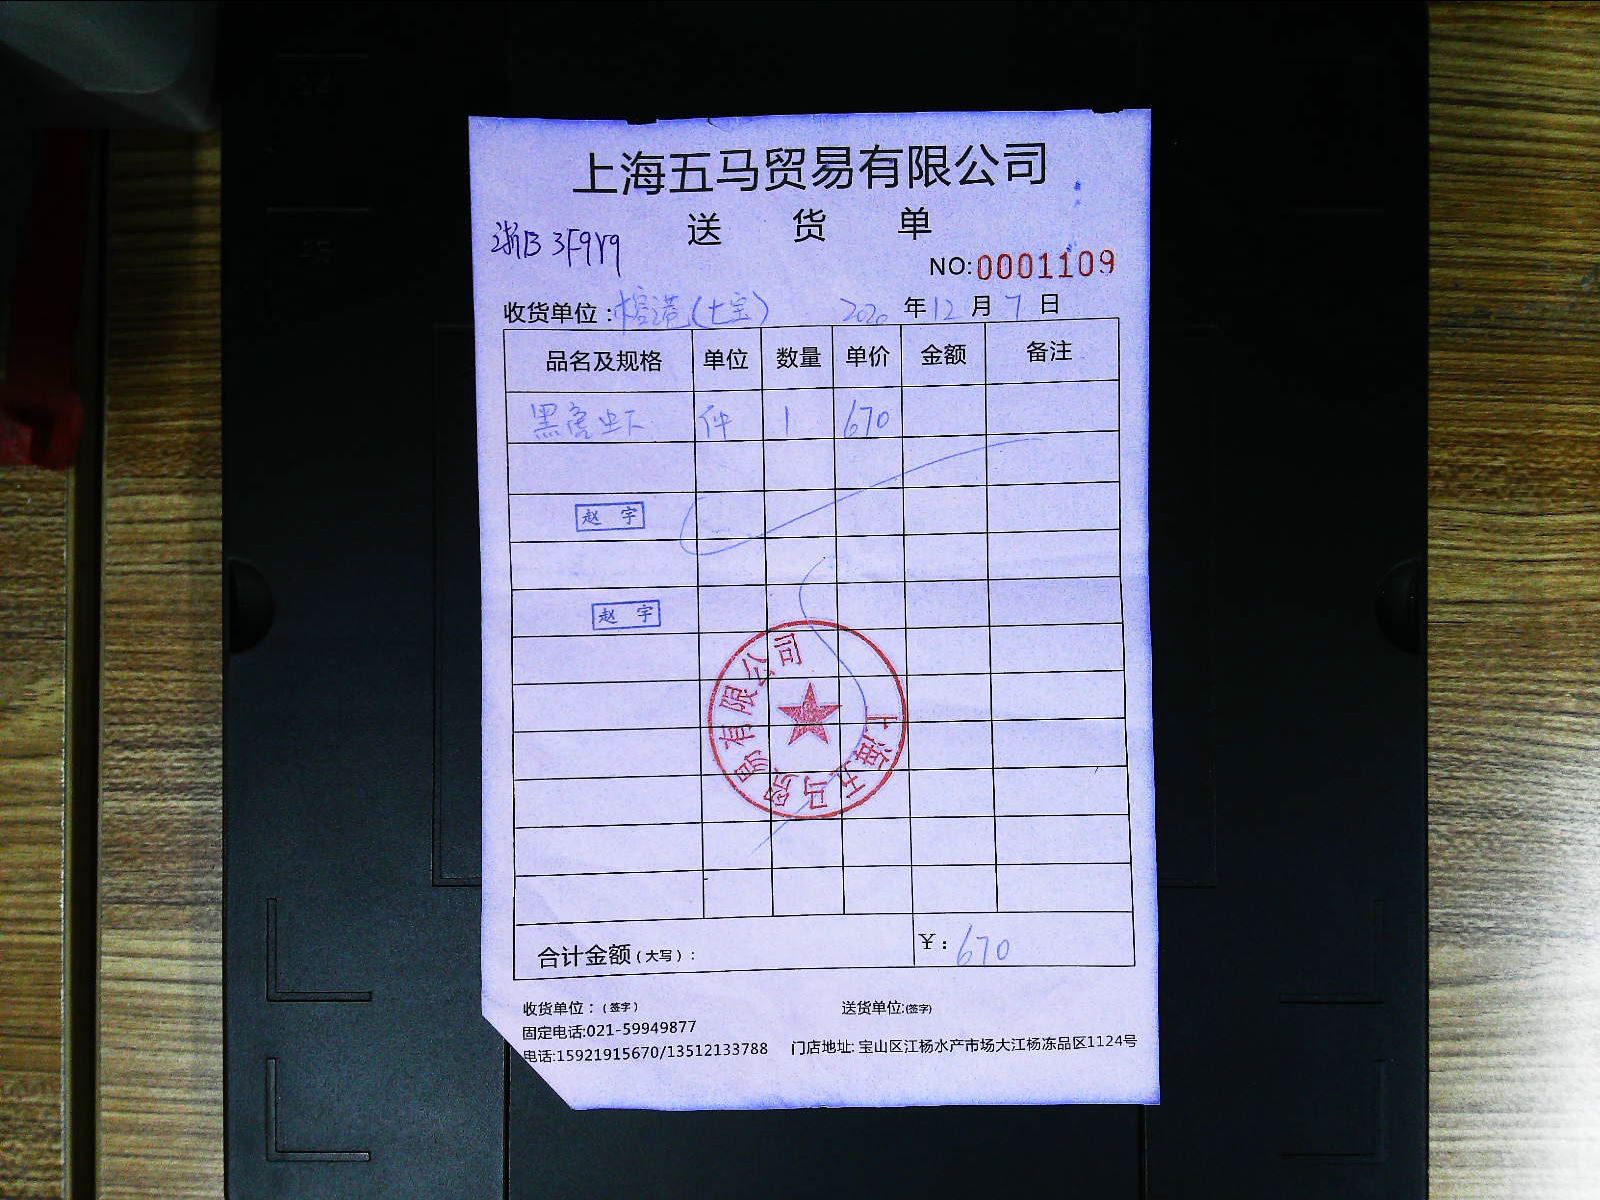 上海五马贸易有限公司
送 货 单
浙B 3F9Y9
NO:0001109
收货单位：榕港(七宝) 2020 年 12 月 7 日
品名及规格 单位 数量 单价 金额 备注
黑虎虾 件 1 670
赵 宇
赵 宇
上海五马贸易有限公司
合计金额(大写)： ¥：670
收货单位：(签字) 送货单位:(签字)
固定电话:021-59949877
电话:15921915670/13512133788 门店地址: 宝山区江杨水产市场大江杨冻品区1124号